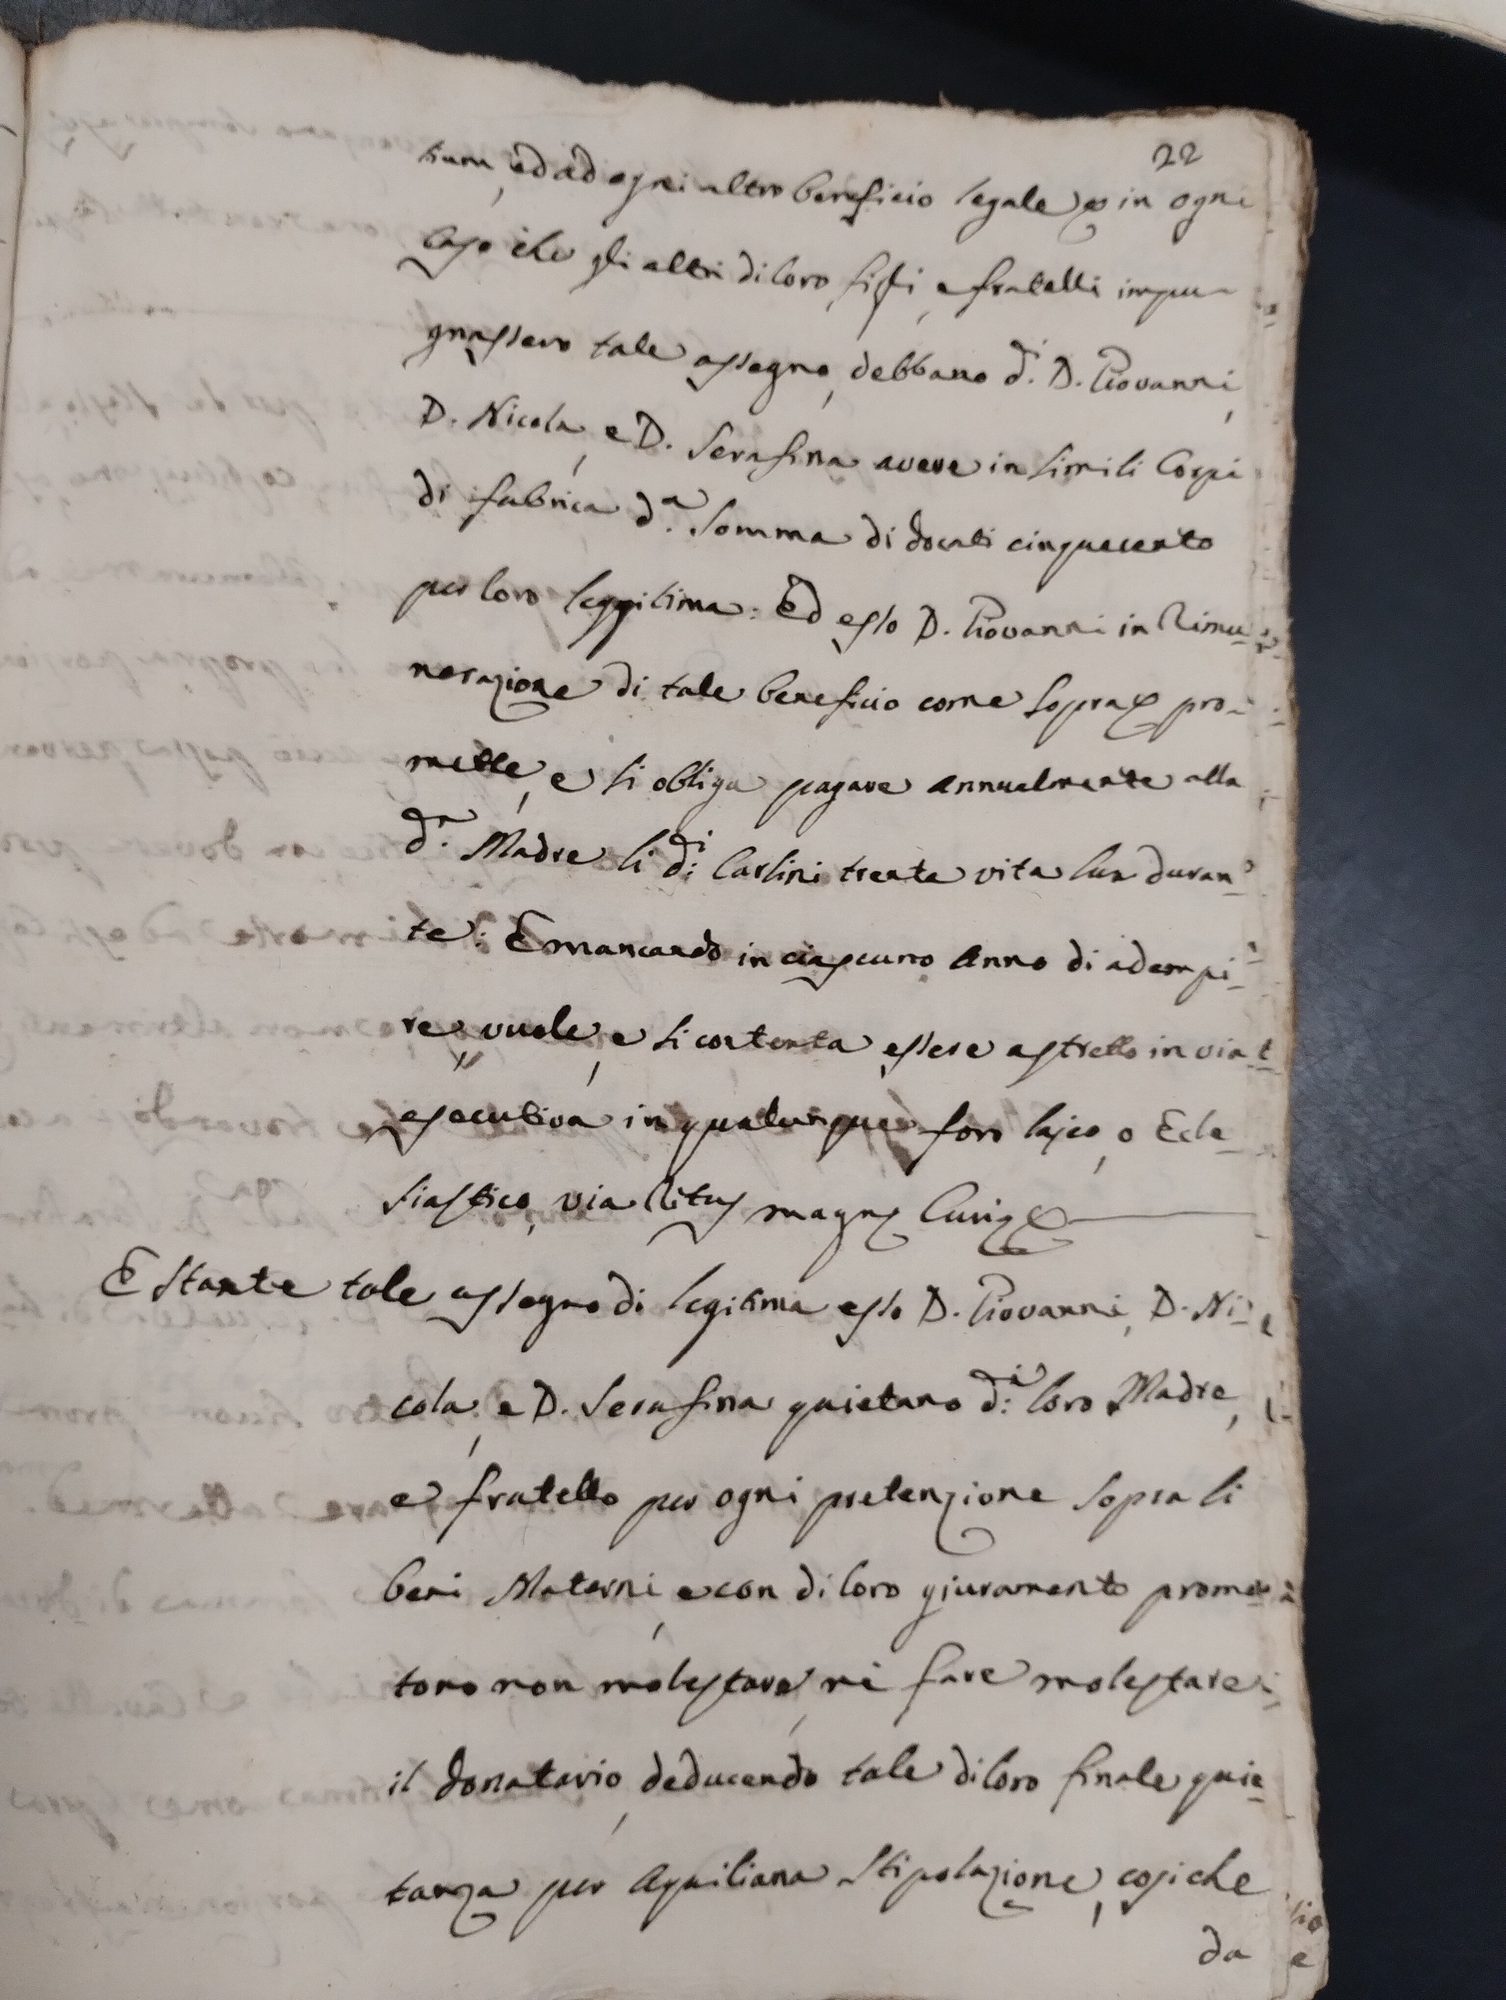 22
tium, ed ad ogni altro beneficio legale &, in ogni
caso che gli altri di loro figli, e fratelli impu-
gnassero tale assegno, debbano d.i D. Giovanni,
D. Nicola, e D. Serafina avere in simili Corpi
di fabrica d.a somma di docati cinquecento
per loro leggitima: Ed esso D. Giovanni in Rimu-
nerazione di tale beneficio come sopra & pro-
mette, e si obliga pagare annualmente alla
d.a Madre li d.i Carlini trenta vita sua duran-
te: E mancando in ciascuno Anno di adempi-
re, vuole, e si contenta, essere astretto in via
esecutiva in qualunque foro lajco, o Ecle-
siastico, via Ritus magnę Curię &
E stante tale assegno di legitima esso D. Giovanni, D. Ni-
cola, e D. Serafina quietano d.i loro Madre,
e fratello per ogni pretenzione sopra li
beni Materni, e con di loro giuramento promet-
tono non molestare, né fare molestare
il donatario, deducendo tale di loro finale quie-
tanza per Aquiliana Stipolazione, cosi che
da